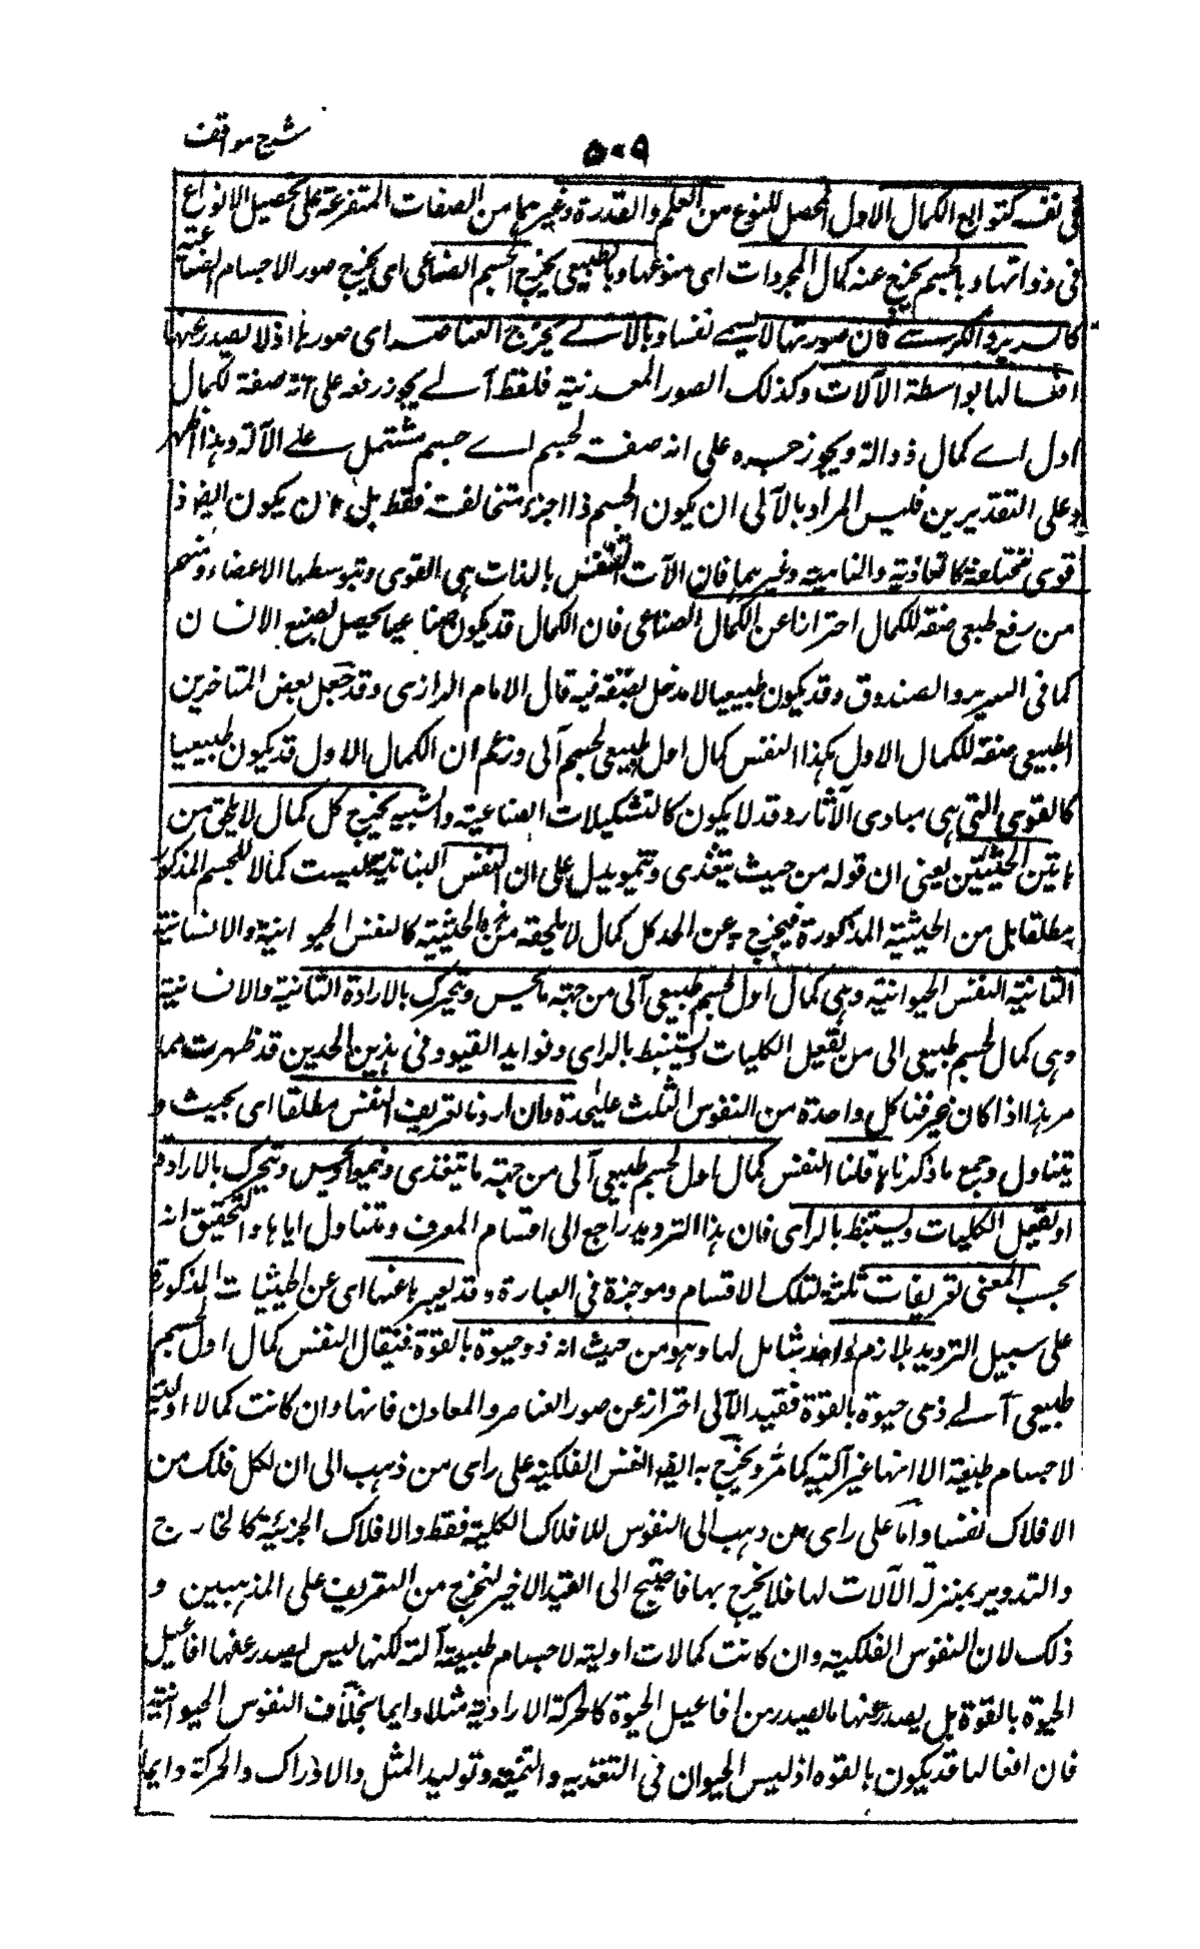 شرح مواقف
٥٠٩
فى تف كتوابع الكمال الاول المحصل للنوع من العلم والقدرة وغيرهما من الصفات المتفرعة على تحصيل الانواع
فى ذواتها وبالجسم يخرج عنه كمال المجردات اى منوعها وبالطبيعى يخرج الجسم الصناعى اى يخرج صور الاجسام الصناعية
كالسرير والكرسى فان صورتها لا يسمى نفسا وبالآلى يخرج العناصر اى صورها اذ لا يصدر عنها
افعالها بواسطة الآلات وكذلك الصور المعدنية فلفظ آلى يجوز رفعه على انه صفة لكمال
اول اى كمال ذو الة ويجوز جره على انه صفة لجسم اى جسم مشتمل على الآلة وهذا اظهر
وعلى التقديرين فليس المراد بالآلى ان يكون الجسم ذا اجزاء متخالفة فقط بل بان يكون ايضا ذا
قوى مختلفة كالغاذية والنامية وغيرهما فان الآت النفس بالذات هى القوى وبتوسطها الاعضاء ومنهم
من رفع طبعى صفة للكمال احترازا عن الكمال الصناعى فان الكمال قد يكون صناعيا يحصل بصنع الانسان
كما فى السرير والصندوق وقد يكون طبيعيا لا مدخل لصنعه فيه قال الامام الرازى وقد جعل بعض المتاخرين
الطبيعى صفة للكمال الاول هكذا النفس كمال اول طبيعى لجسم آلى وزعم ان الكمال الاول قد يكون طبيعيا
كالقوى التى هى مبادى الآثار وقد لا يكون كالتشكيلات الصناعية والشبيه يخرج كل كمال لا يلحق من
هاتين الحيثيتين يعنى ان قوله من حيث يتغذى وتنمو يدل على ان النفس النباتية ليست كمالا للجسم المذكور
مطلقا بل من الحيثية المذكورة فيخرج عن الحد كل كمال لا يلحقه من هذه الحيثية كالنفس الحيوانية والانسانية
الثانية النفس الحيوانية وهى كمال اول لجسم طبيعى آلى من جهة ما يحس ويتحرك بالارادة الثانية والانسانية
وهى كمال لجسم طبيعى الى من يعقل الكليات ويستنبط بالراى وفوايد القيود فى هذين الحدين قد ظهرت مما
مر هذا اذا كان عرفنا كل واحدة من النفوس الثلث عليحدة وان اردنا تعريف النفس مطلقا اى بحيث
يتناول وجمع ما ذكرناه قلنا النفس كمال اول لجسم طبيعى آلى من جهة ما يتغذى وينمو او يحس ويتحرك بالارادة
او يعقل الكليات ويستنبط بالراى فان هذا الترديد راجع الى اقسام المعرف ومتناول اياها والتحقيق انه
بحسب المعنى تعريفات ثلثة لتلك الاقسام وموجزة فى العبارة وقد يعبر عنها اى عن الحيثيات المذكورة
على سبيل الترديد بلازم واحد شامل لها وهو من حيث انه ذو حيوة بالقوة فيقال النفس كمال اول لجسم
طبيعى آلى ذى حيوة بالقوة فقيد الآلى احتراز عن صور العناصر والمعادن فانها وان كانت كمالا اولية
لاجسام طبيعة الا انها غير آلية كما مر ويخرج به ايضا النفس الفلكية على راى من ذهب الى ان لكل فلك من
الافلاك نفسا واما على راى من ذهب الى النفوس للافلاك الكلية فقط والافلاك الجزئية كالخارج
والتدوير بمنزلة الآلات لها فلا يخرج بها فاحتيج الى القيد الاخير لتخرج من التعريف على المذهبين و
ذلك لان النفوس الفلكية وان كانت كمالات اولية لاجسام طبيعة آلته لكنها ليس يصدر عنها افاعيل
الحيوة بالقوة بل يصدر عنها ما يصدر من افاعيل الحيوة كالحركة الارادية مثلا دايما بخلاف النفوس الحيوانية
فان افعالها قد يكون بالقوه اذ ليس الحيوان فى التغذيه والتنمية وتوليد المثل والادراك والحركة دايما